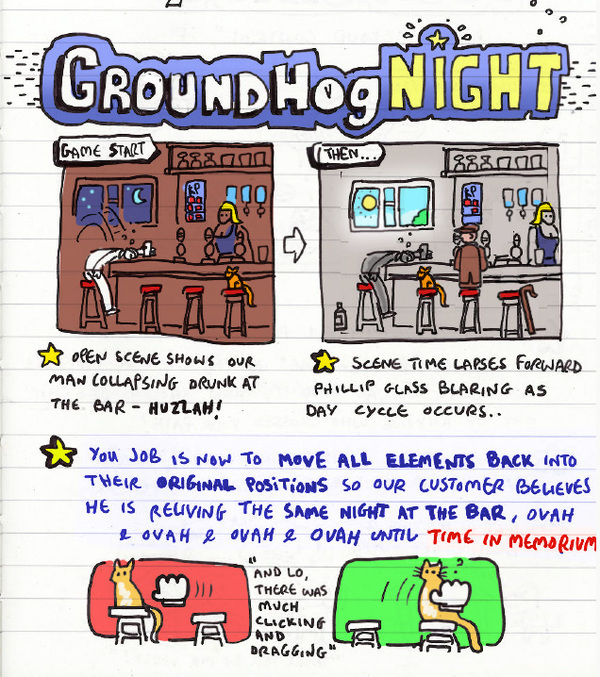 GROUNDHOG NIGHT
GAME START
THEN...
OPEN SCENE SHOWS OUR
MAN COLLAPSING DRUNK AT
THE BAR - HUZZAH!
SCENE TIME LAPSES FORWARD
PHILLIP GLASS BLARING AS
DAY CYCLE OCCURS..
YOU JOB IS NOW TO MOVE ALL ELEMENTS BACK INTO
THEIR ORIGINAL POSITIONS SO OUR CUSTOMER BELIEVES
HE IS RELIVING THE SAME NIGHT AT THE BAR, OVAH
& OVAH & OVAH & OVAH UNTIL TIME IN MEMORIUM
"AND LO,
THERE WAS
MUCH
CLICKING
AND
DRAGGING"